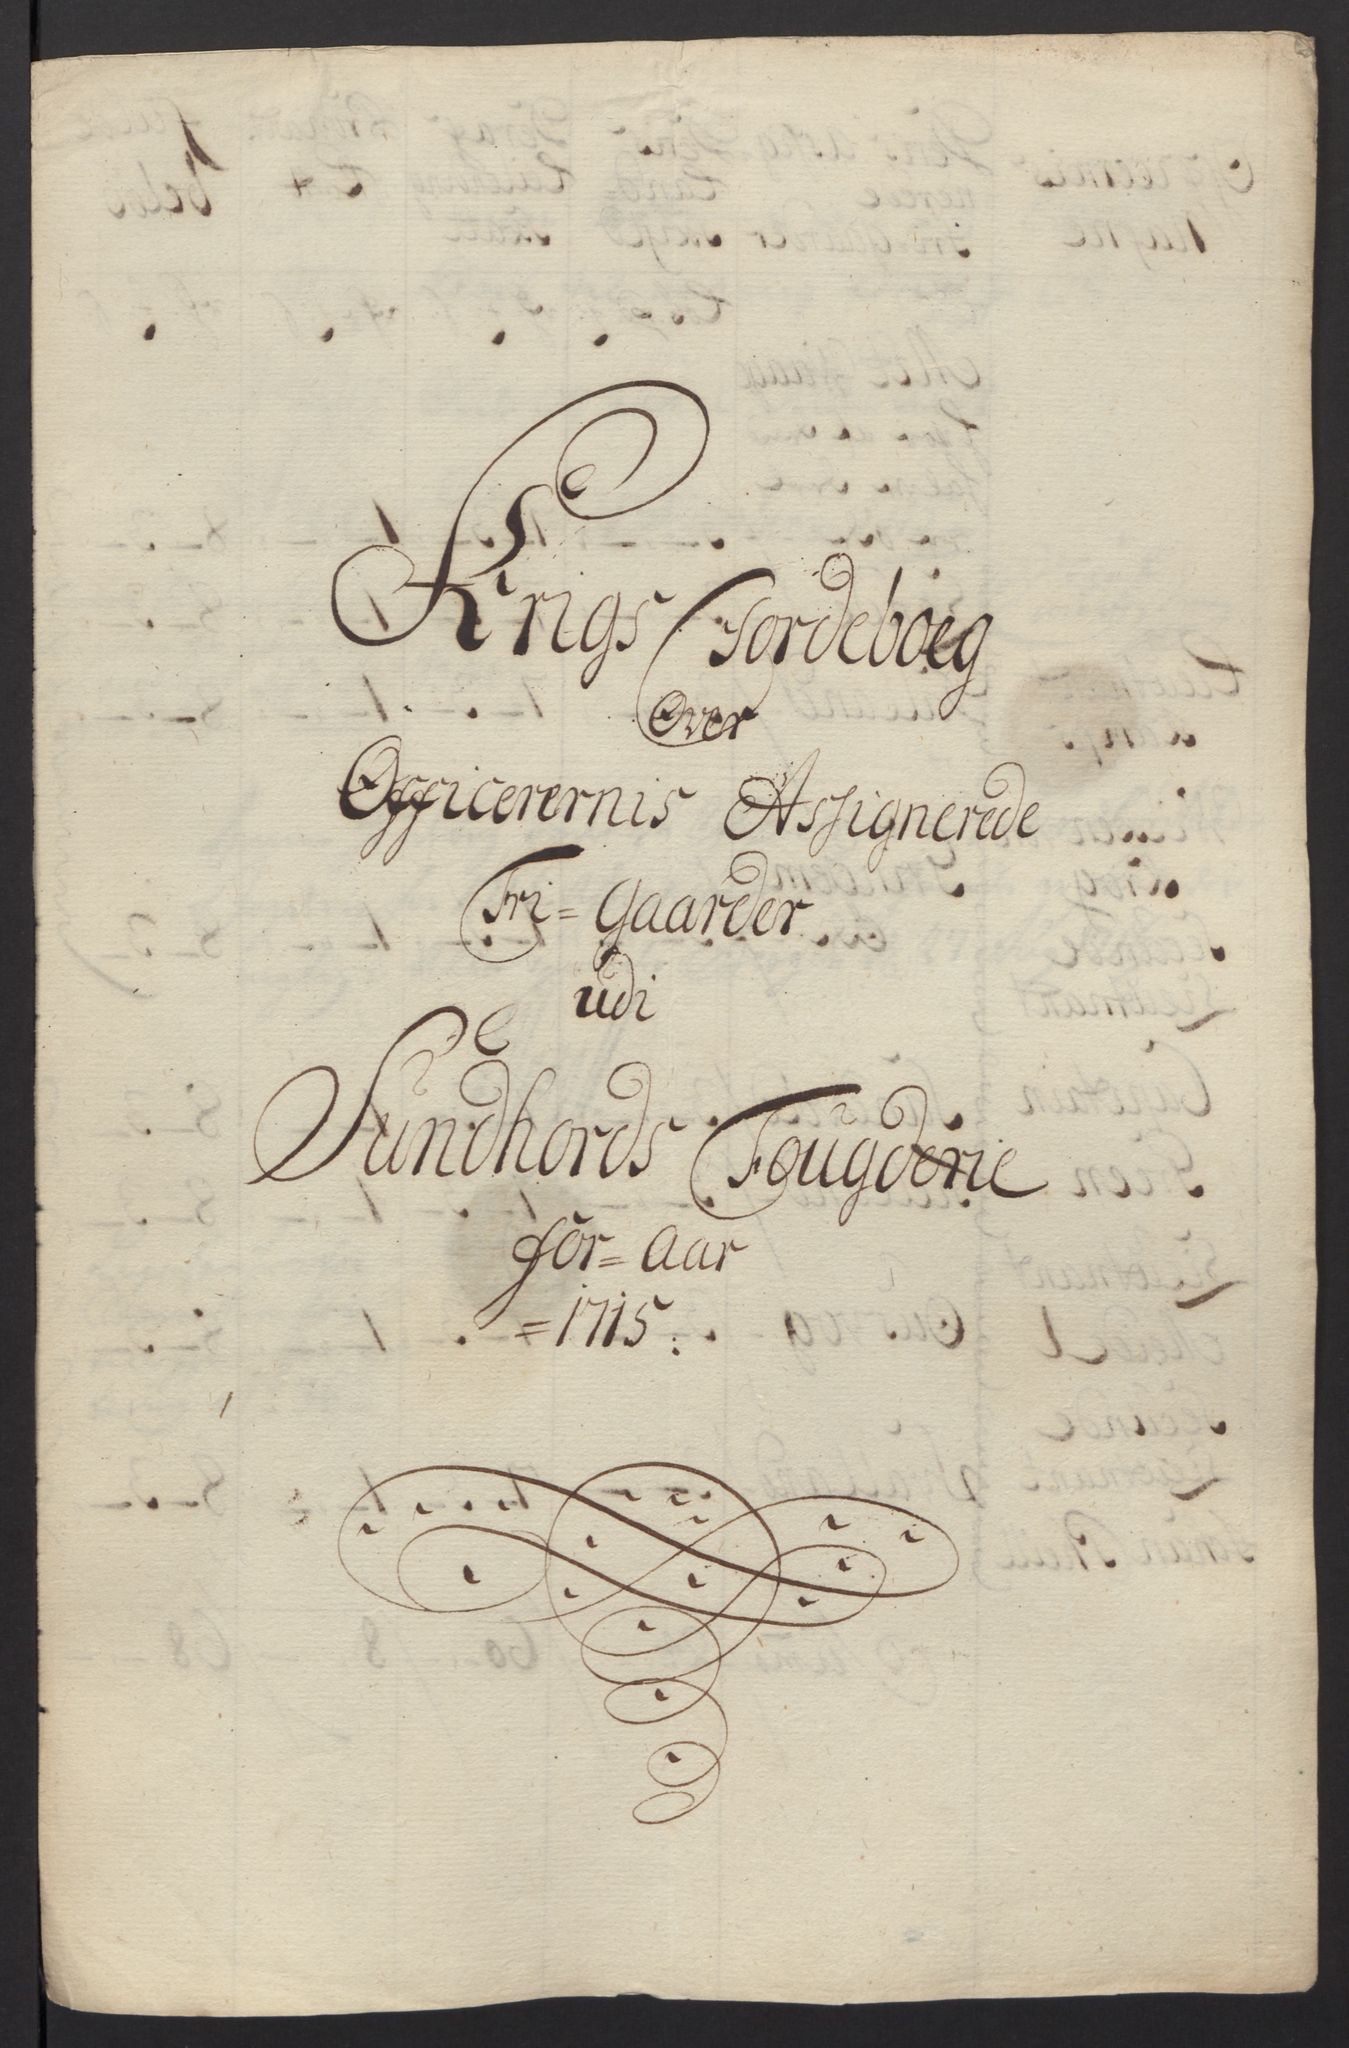 Krigs Jordeboeg
Over
Officerernis Assignerede
Fri= gaarder
udi
Sundhords Fougderie
for= Aar
=1715: